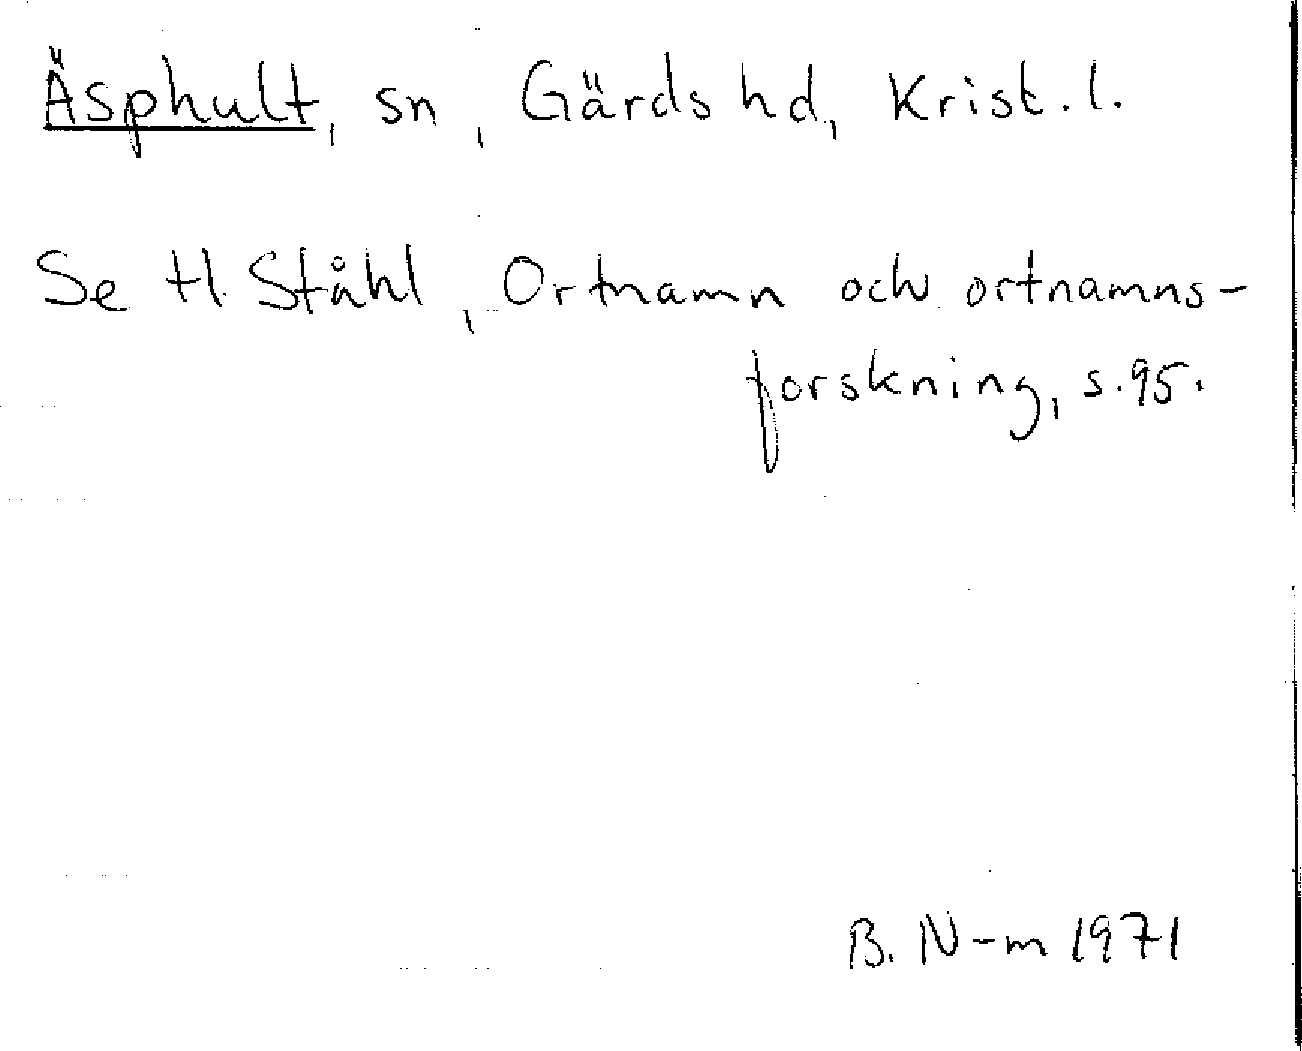 Äsphult, sn, Gärds hd, Krist. l.
Se H. Ståhl, Ortnamn och ortnamns-
forskning, s. 95.
B. N-m 1971